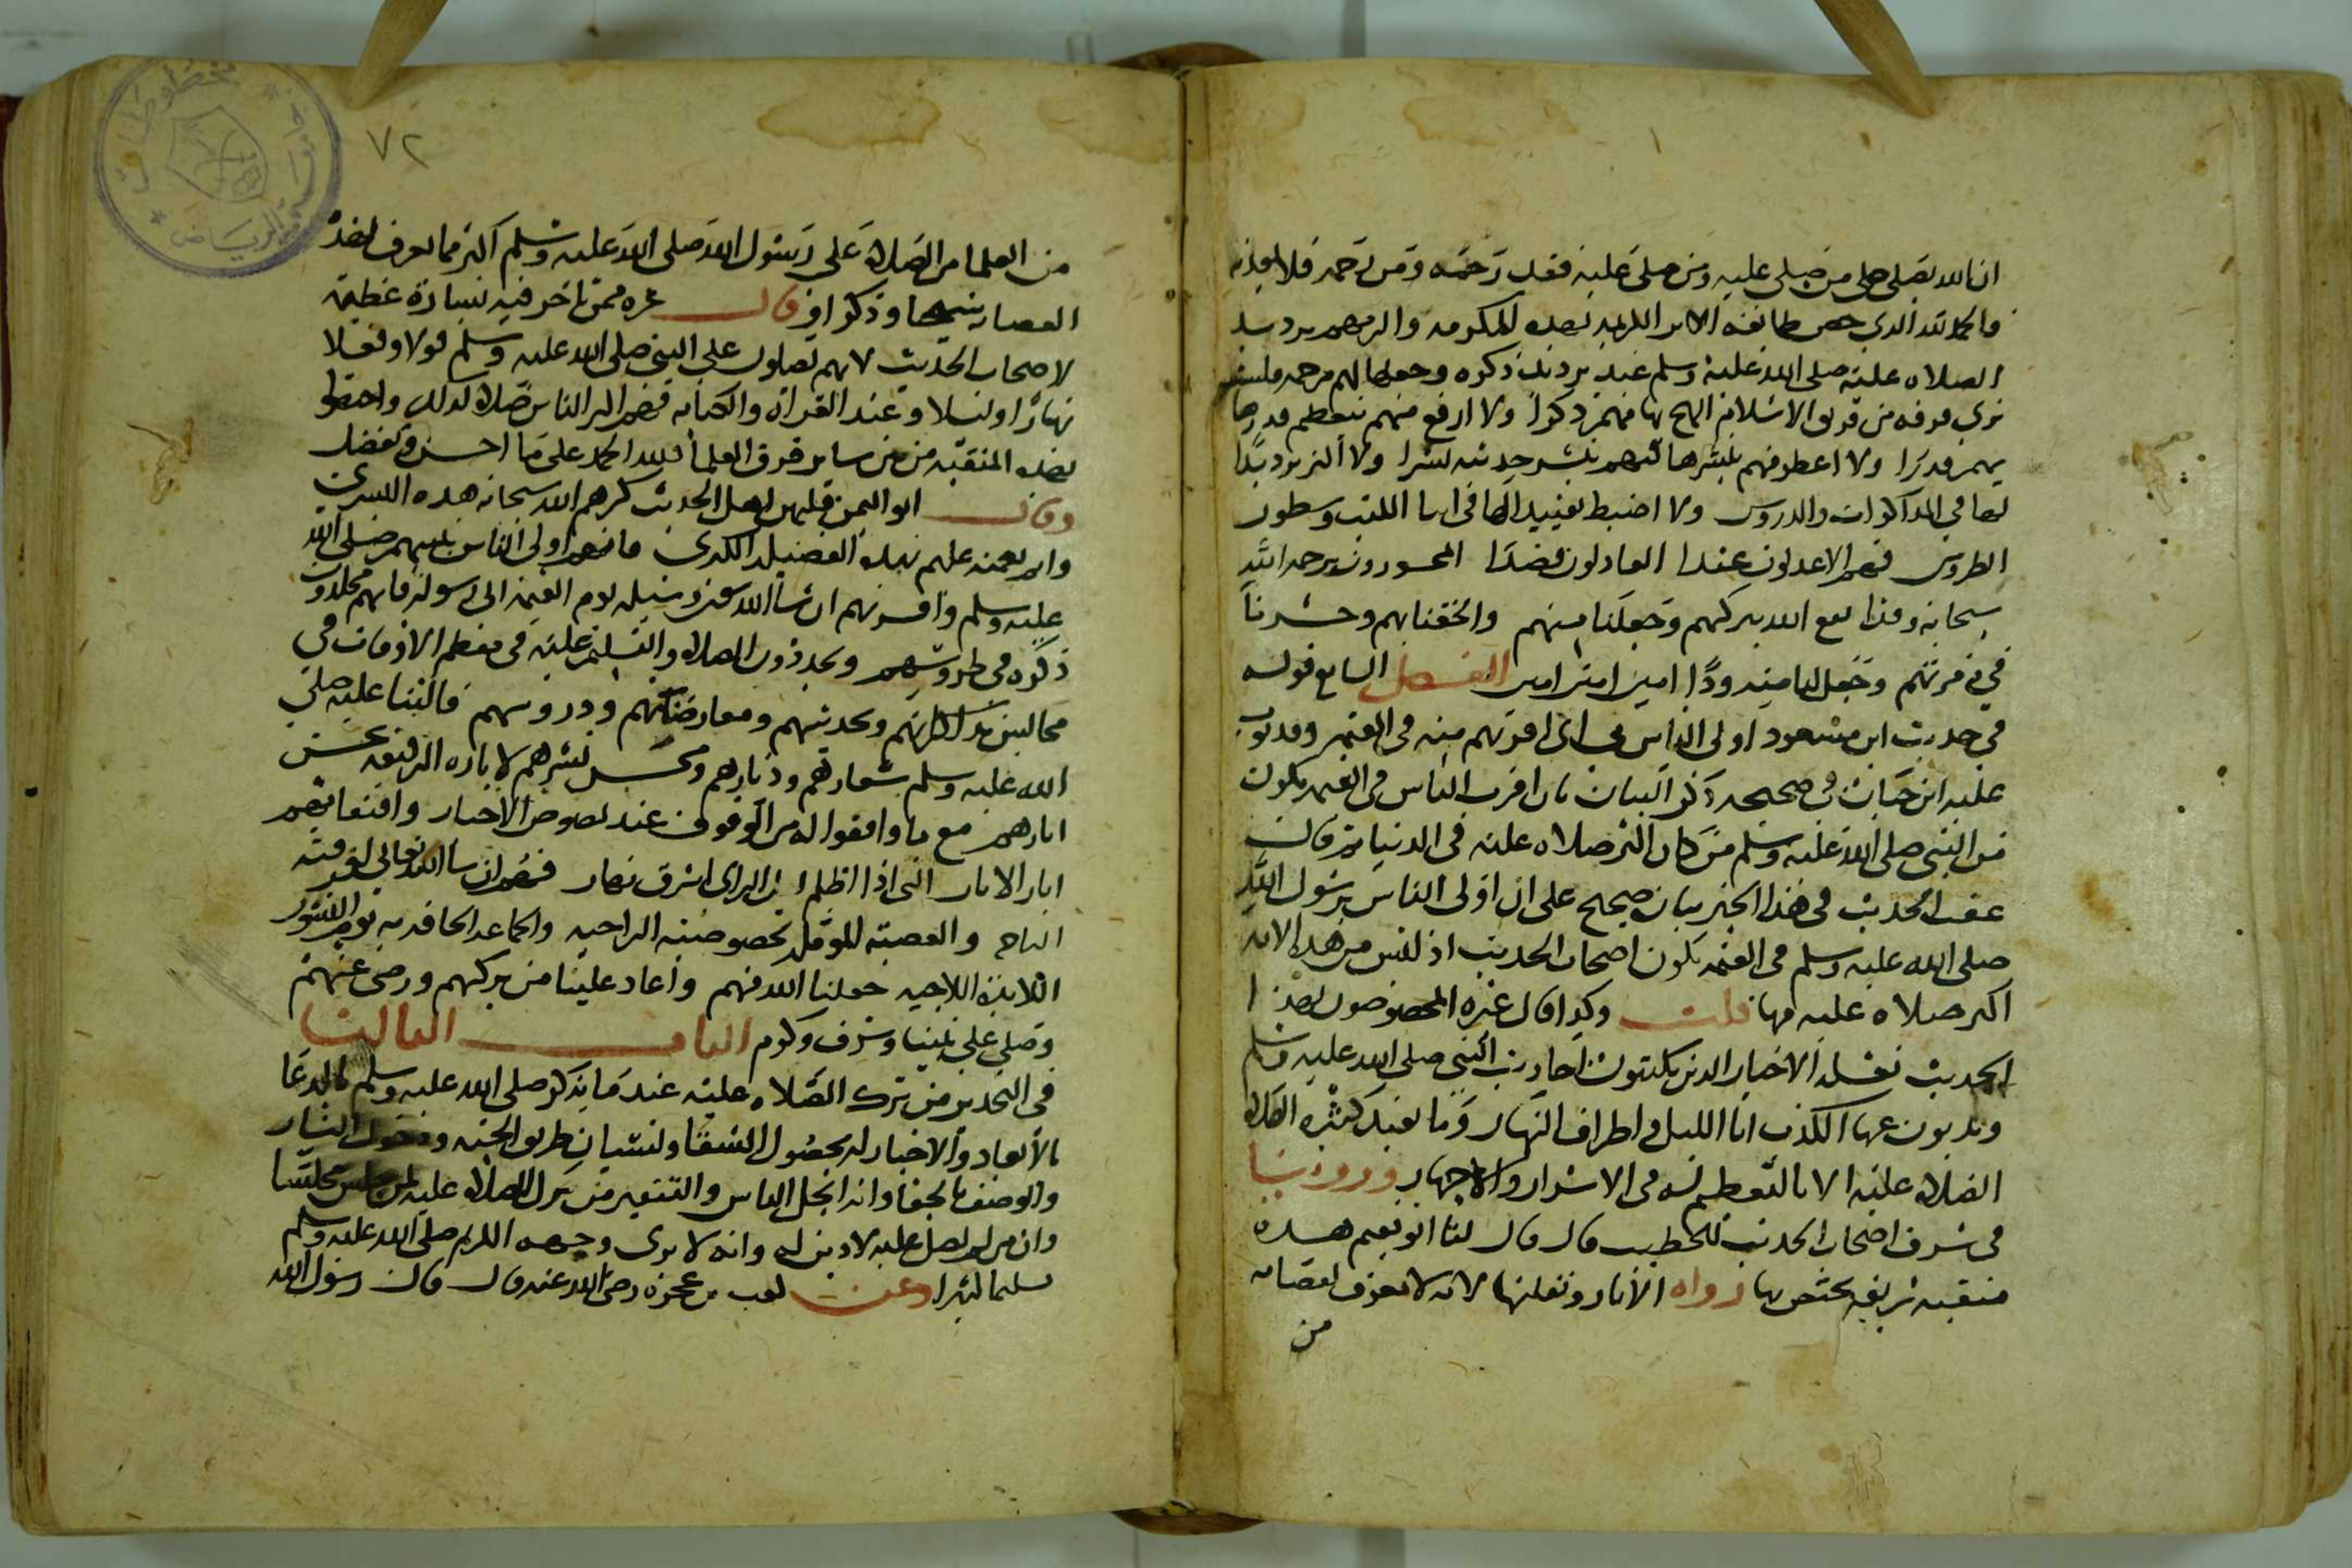 ان الله يصلي على من صلى عليه ومن صلى عليه فقد رحمه ومن رحمه فلا يعذبه
فالحمد لله الذي خص طائفة الاثر الكريمة بهذه المكرمة والزمهم
الصلاه عليه صلى الله عليه وسلم عند ترديد ذكره وجعلها لهم مرحمه فليس
نرى فرقه من فرق الاسلام الهج بها منهم ذكرا ولا ارفع منهم بتعظيم قدرها
منهم قدرا ولا اعطر منهم بنشرها نشرا ولا اكثر ترديدا
لها في المذاكرات والدروس ولا اضبط تقييدا لها في اثنا الكتب وسطور
الطروس فهم الاعدلون عند العادلون قصدا المحسودون يرحمه الله
سبحانه وهذا نفع الله ببركتهم وجعلنا منهم والحقنا بهم وحشرنا
في زمرتهم وجعل لنا منه ودا امين امين امين الفصل السابع قوله
في حديث ابن مسعود اولى الناس بي اي اقربهم منه في القيمه وقد بوب
عليه ابن حبان في صحيحه ذكر البيان بان اقرب الناس في القيمه يكون
من النبي صلى الله عليه وسلم من كان اكثر صلاه عليه في الدنيا ثم قال
عقب الحديث في هذا الخبر بيان صحيح على ان اولى الناس برسول الله
صلى الله عليه وسلم في القيمه يكون اصحاب الحديث اذ ليس من هذه الامه
اكثر صلاه عليه منها قلت وكذا قال غيره المخصوصون بهذا
الحديث نقلة الاخبار الذين يكتبون احاديث النبي صلى الله عليه وسلم
ويذبون عنها الكذب انا الليل واطراف النهار وما نفيد كثره الصلاه
الصلاه عليه الا بالتعظيم له في الاسرار والاجهار وروينا
في شرف اصحاب الحديث للخطيب قال قال لنا ابو نعيم هذه
منقبه شريفه يختص بها رواه الاثار ونقلتها لانه لا يعرف لعصابه
من
٧٢
من العلما من الصلاه على رسول الله صلى الله عليه وسلم اكثر مما يعرف لهذه
العصابه نسخا وذكرا وقال غيره ممن تاخر فيه بشارة عظيمه
لاصحاب الحديث لانهم يصلون على النبي صلى الله عليه وسلم قولا وفعلا
نهارا وليلا وعند القراة والكتابه فهم اكثر الناس صلاه لذلك واختصوا
بهذه المنقبه من بين ساير فرق العلما فلله الحمد على ما احسن وتفضل
وقال ابو اليمن فليهن اهل الحديث كرهم الله سبحانه هذه البشرى
واتم نعمه عليهم بهذه الفضيلة الكبرى فانهم اولى الناس بنبيهم صلى الله
عليه وسلم واقربهم ان شا الله وسيله يوم القيمه الى رسوله فانهم يخلدون
ذكره في طروسهم ويجددون الصلاه والتسليم عليه في معظم الاوقات في
مجالس مذاكرتهم وتحديثهم ومعارضتهم ودروسهم فالثنا عليه صلى
الله عليه وسلم شعارهم ودثارهم وبحسن نشرهم لاثاره الشريفه تحسن
اثارهم مع ما وافقوا له من الوقوف عند نصوص الاخبار واقتفائهم
اثار الاثار التي اذا اظلم ليل الراي اشرق نهار فهم ان شا الله تعالى الفرقه
الناجيه والعصبه الراجيه والجماعه الحافده يوم النشور
اللائذه اللاجيه جعلنا الله منهم واعاد علينا من بركتهم ورضي عنهم
وصلى على نبينا وشرف وكرم الباب الثالث
في التحذير من ترك الصلاه عليه عند ما يذكر صلى الله عليه وسلم بالدعا
بالابعاد والاخبار له بحصول الشقا ونسيان طريق الجنه ودخول النار
والوصف بالجفا وانه ابخل الناس والتنفير من ترك الصلاه عليه لمن جلس مجلسا
وان من لم يصل عليه لا دين له وانه لا يرى وجهه الكريم صلى الله عليه وسلم
تسليما كثيرا وعن كعب بن عجره رضي الله عنه قال قال رسول الله